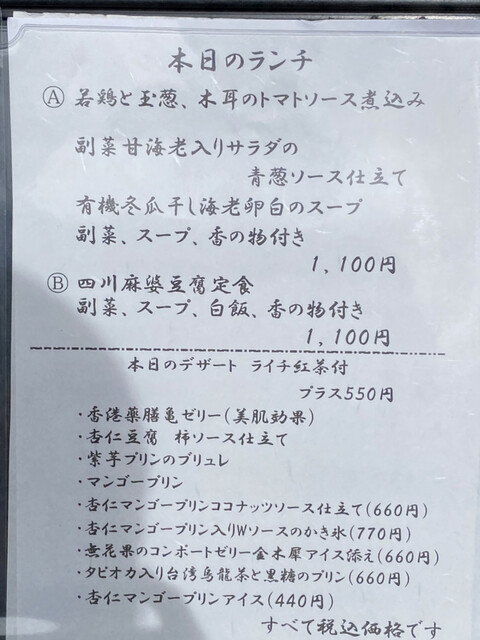 本日のランチ
Ⓐ 若鶏と玉葱、木耳のトマトソース煮込み
副菜甘海老入りサラダの
青葱ソース仕立て
有機冬瓜干し海老卵白のスープ
副菜、スープ、香の物付き
1,100円
Ⓑ 四川麻婆豆腐定食
副菜、スープ、白飯、香の物付き
1,100円
本日のデザート ライチ紅茶付
プラス550円
・香港薬膳亀ゼリー(美肌効果)
・杏仁豆腐 柿ソース仕立て
・紫芋プリンのブリュレ
・マンゴープリン
・杏仁マンゴープリンココナッツソース仕立て(660円)
・杏仁マンゴープリン入りWソースのかき氷(770円)
・無花果のコンポートゼリー金木犀アイス添え(660円)
・タピオカ入り台湾烏龍茶と黒糖のプリン(660円)
・杏仁マンゴープリンアイス(440円)
すべて税込価格です